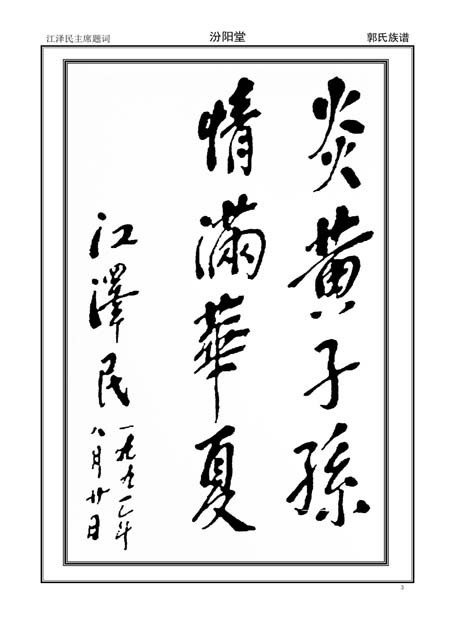 江泽民主席题词
汾阳堂
郭氏族谱
炎黄子孫
情滿華夏
江澤民
一九九一年
八月廿日
3